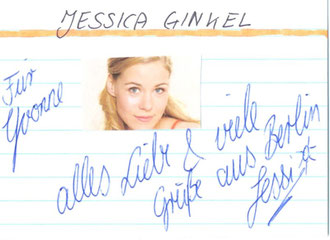 JESSICA GINKEL
Für
Yvonne
alles Liebe & viele
Grüße aus Berlin
Jessi